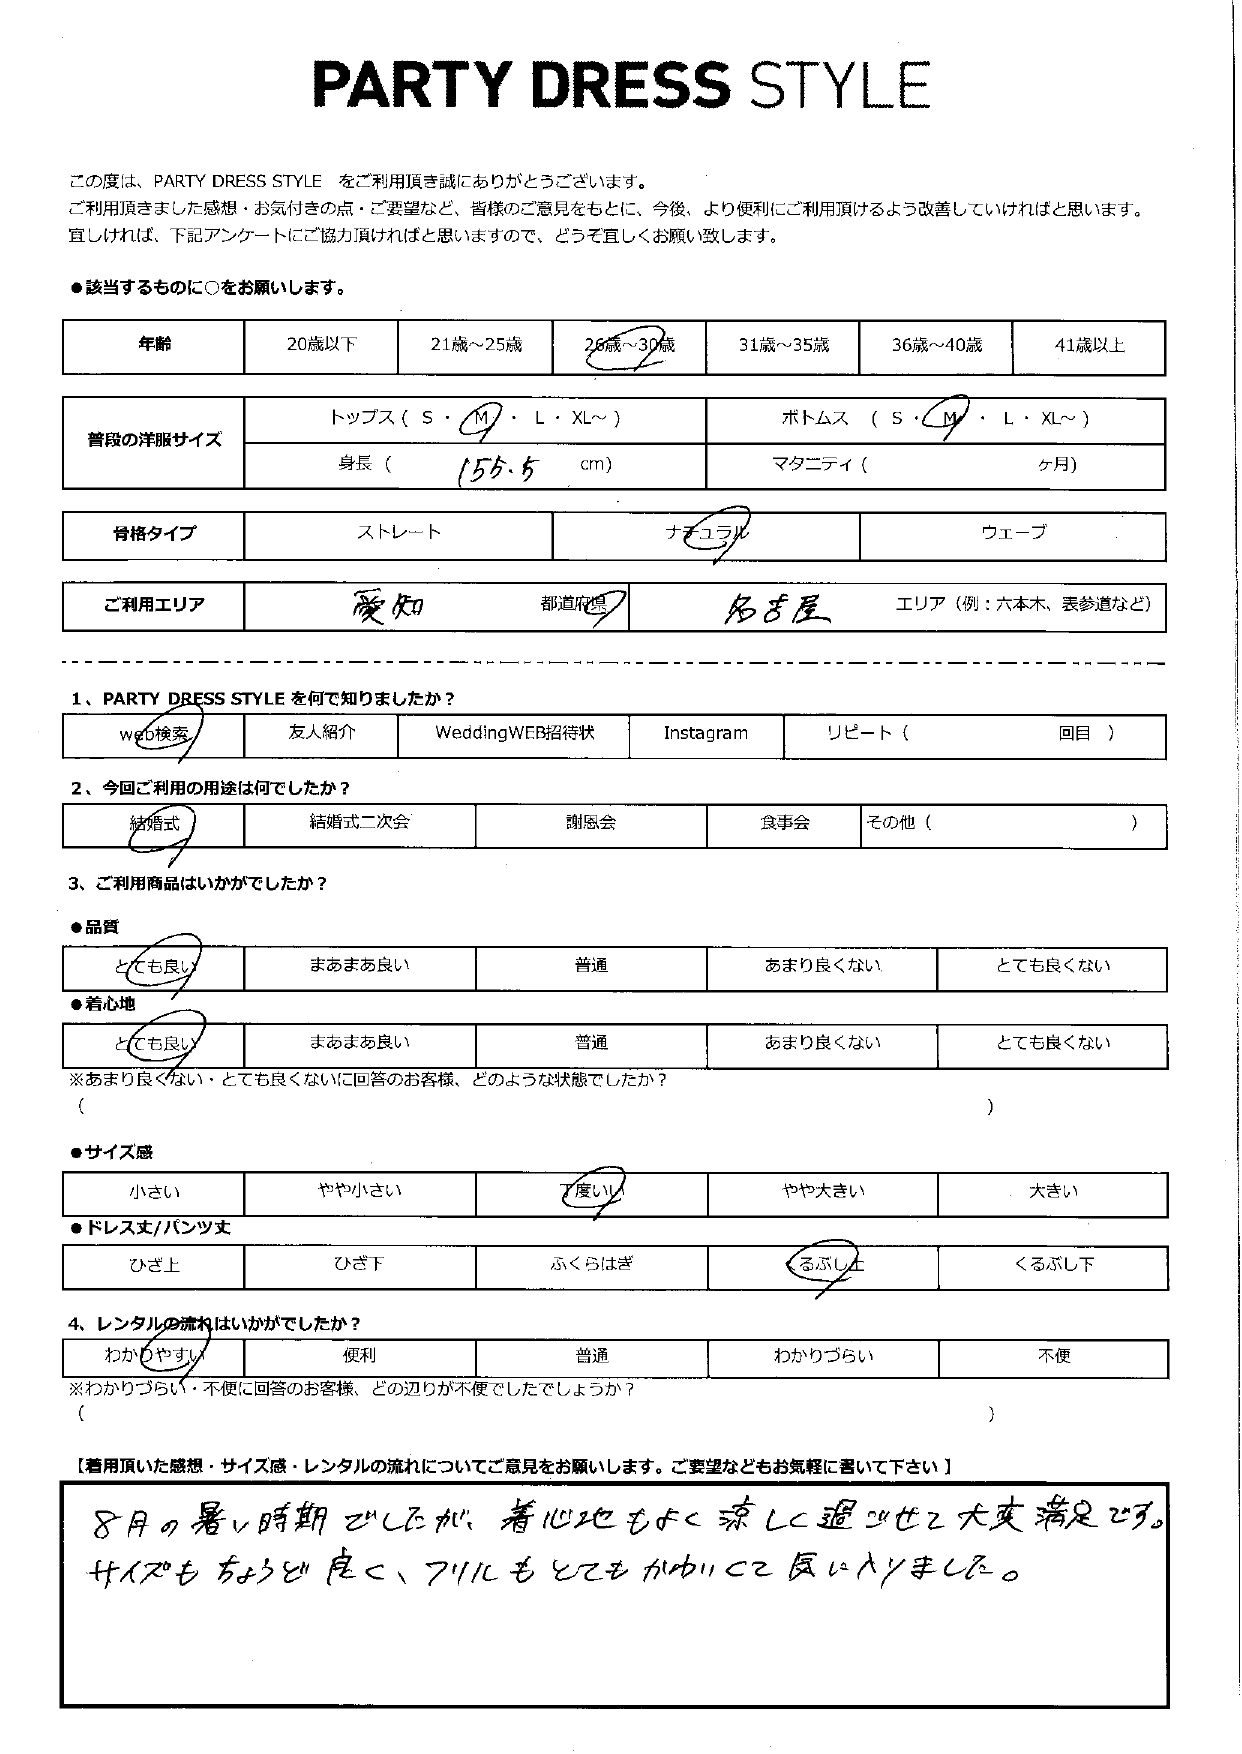 PARTY DRESS STYLE
この度は、PARTY DRESS STYLE をご利用頂き誠にありがとうございます。
ご利用頂きました感想・お気付きの点・ご要望など、皆様のご意見をもとに、今後、より便利にご利用頂けるよう改善していければと思います。
宜しければ、下記アンケートにご協力頂ければと思いますので、どうぞ宜しくお願い致します。
●該当するものに○をお願いします。
年齢 20歳以下 21歳～25歳 26歳～30歳 31歳～35歳 36歳～40歳 41歳以上
普段の洋服サイズ トップス ( S ・ M ・ L ・ XL～ ) ボトムス ( S ・ M ・ L ・ XL～ )
身長 ( 155.5 cm) マタニティ ( ヶ月)
骨格タイプ ストレート ナチュラル ウェーブ
ご利用エリア 愛知 都道府県 名古屋 エリア（例：六本木、表参道など）
1、PARTY DRESS STYLE を何で知りましたか？
web検索 友人紹介 WeddingWEB招待状 Instagram リピート ( 回目 )
2、今回ご利用の用途は何でしたか？
結婚式 結婚式二次会 謝恩会 食事会 その他 ( )
3、ご利用商品はいかがでしたか？
●品質
とても良い まあまあ良い 普通 あまり良くない とても良くない
●着心地
とても良い まあまあ良い 普通 あまり良くない とても良くない
※あまり良くない・とても良くないに回答のお客様、どのような状態でしたか？
( )
●サイズ感
小さい やや小さい 丁度いい やや大きい 大きい
●ドレス丈/パンツ丈
ひざ上 ひざ下 ふくらはぎ くるぶし上 くるぶし下
4、レンタルの流れはいかがでしたか？
わかりやすい 便利 普通 わかりづらい 不便
※わかりづらい・不便に回答のお客様、どの辺りが不便でしたでしょうか？
( )
【着用頂いた感想・サイズ感・レンタルの流れについてご意見をお願いします。ご要望などもお気軽に書いて下さい 】
8月の暑い時期でしたが、着心地もよく涼しく過ごせて大変満足です。
サイズもちょうど良く、フリルもとてもかわいくて気に入りました。